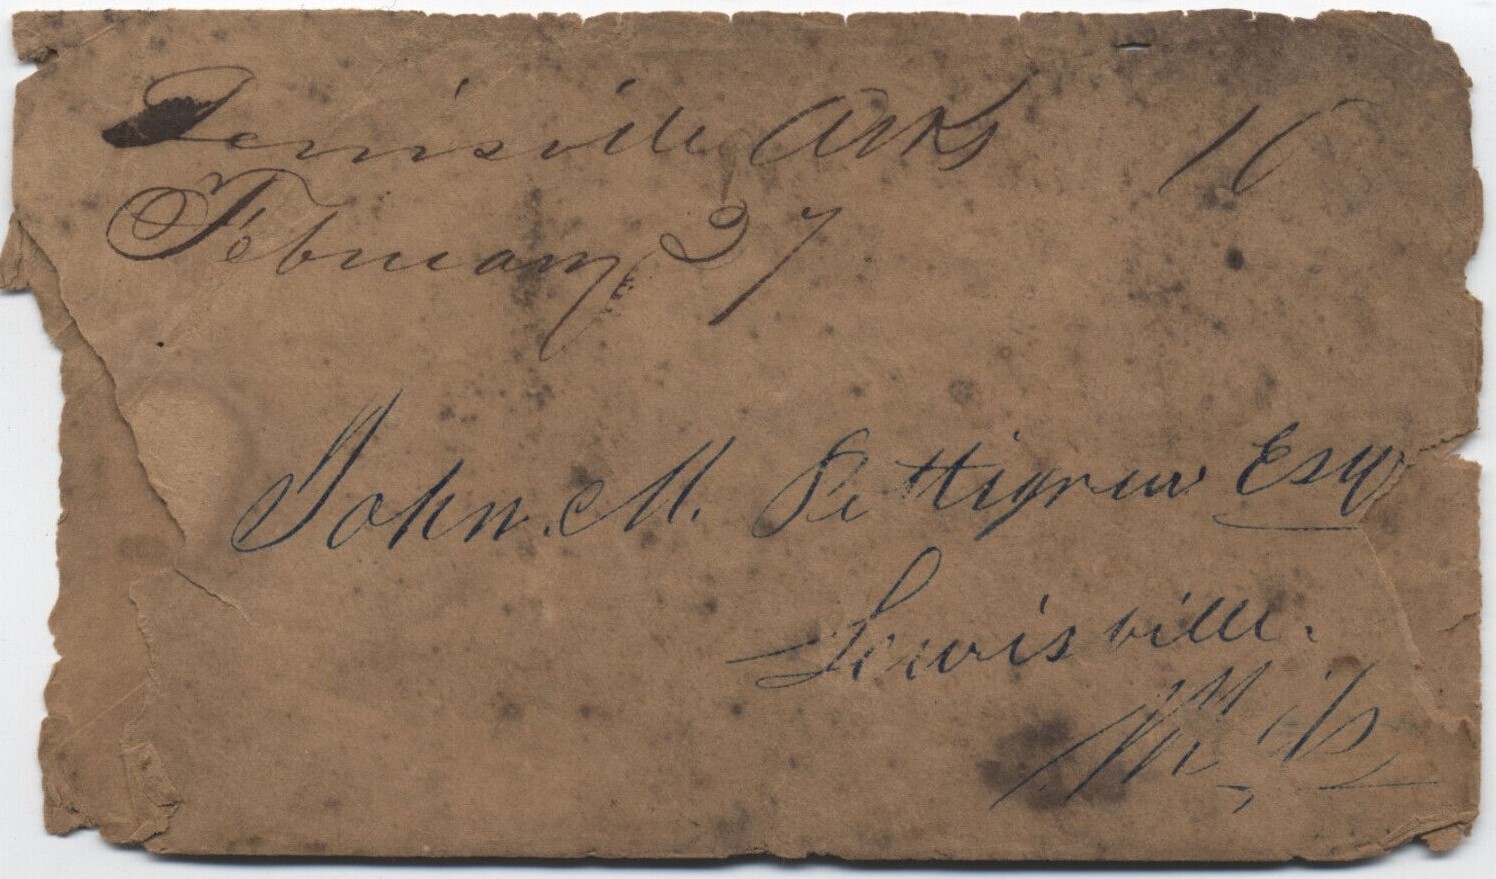 Lewisville Arks 10
February 27
John. M. Pettigrew Esq
Lewisville.